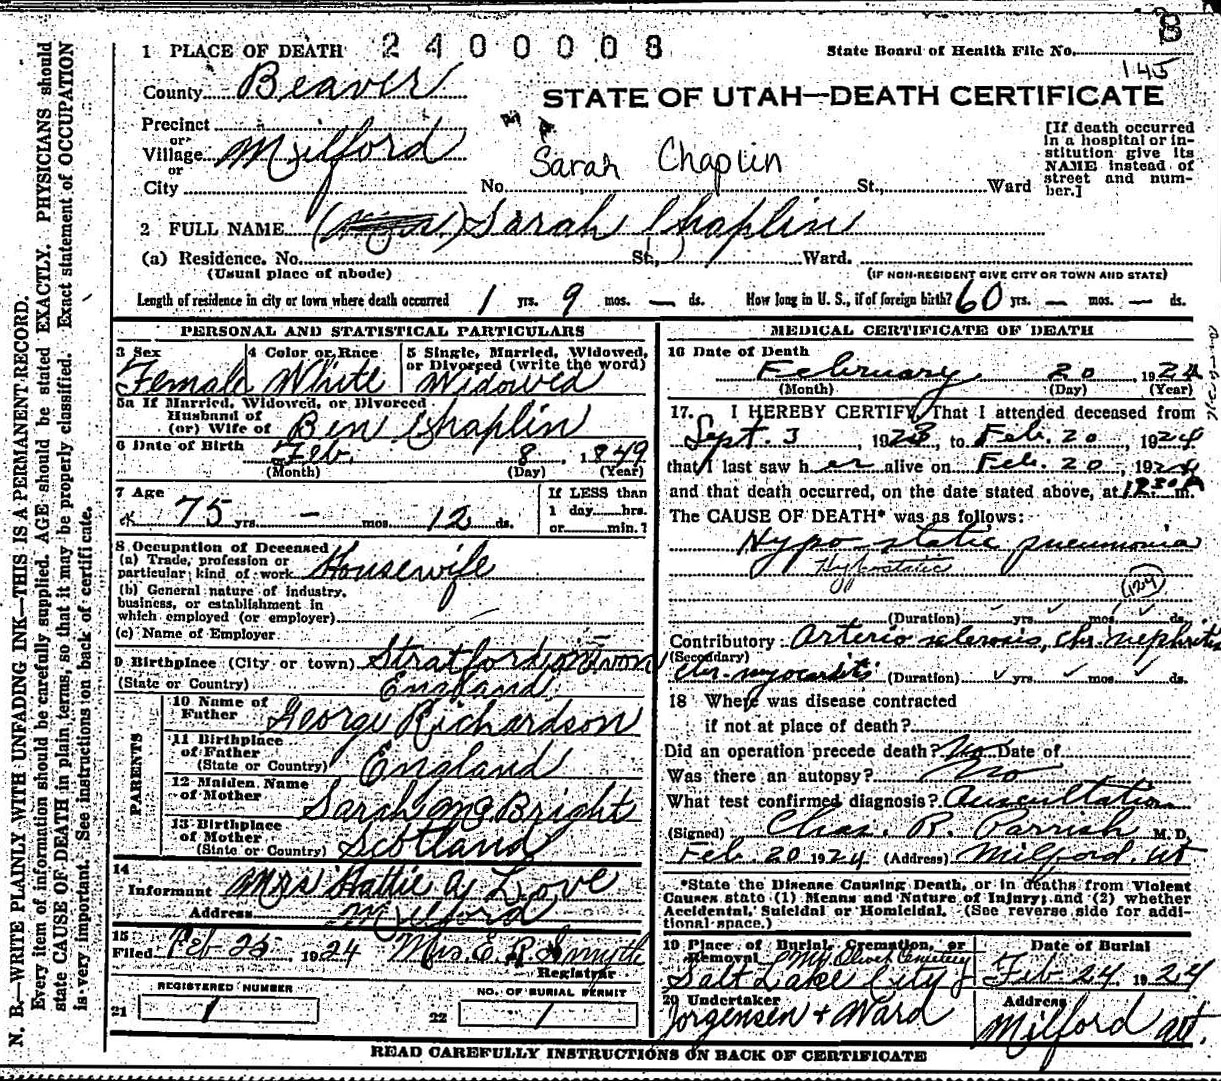 8
1 PLACE OF DEATH 2400008 State Board of Health File No.
145
County Beaver
STATE OF UTAH—DEATH CERTIFICATE
Precinct
or
Village Milford
or
City
Sarah Chaplin
No. St., Ward
[If death occurred
in a hospital or in-
stitution give its
NAME instead of
street and num-
ber.]
2 FULL NAME Sarah Chaplin
(a) Residence. No. St., Ward.
(Usual place of abode) (IF NON-RESIDENT GIVE CITY OR TOWN AND STATE)
Length of residence in city or town where death occurred 1 yrs. 9 mos. — ds. How long in U. S., if of foreign birth? 60 yrs. — mos. — ds.
PERSONAL AND STATISTICAL PARTICULARS
3 Sex Female
4 Color or Race White
5 Single, Married, Widowed,
or Divorced (write the word)
Widowed
5a If Married, Widowed, or Divorced
Husband of
(or) Wife of Ben Chaplin
6 Date of Birth Feb. 8, 1849
(Month) (Day) (Year)
7 Age 75 yrs. — mos. 12 ds.
If LESS than
1 day hrs.
or min.?
8 Occupation of Deceased
(a) Trade, profession or
particular kind of work Housewife
(b) General nature of industry,
business, or establishment in
which employed (or employer)
(c) Name of Employer
9 Birthplace (City or town) Stratford on Avon
(State or Country) England
PARENTS
10 Name of
Father George Richardson
11 Birthplace
of Father
(State or Country) England
12 Maiden Name
of Mother Sarah McBright
13 Birthplace
of Mother
(State or Country) Scotland
14
Informant Mrs Hattie A Love
Address Milford
15
Filed Feb 25 1924 Mrs. E. R. Smyth
Registrar
REGISTERED NUMBER
21 1
NO. OF BURIAL PERMIT
22 1
MEDICAL CERTIFICATE OF DEATH
16 Date of Death
February 20 1924
(Month) (Day) (Year)
17. I HEREBY CERTIFY, That I attended deceased from
Sept. 3, 1923, to Feb. 20, 1924
that I last saw her alive on Feb. 20, 1924
and that death occurred, on the date stated above, at m.
The CAUSE OF DEATH* was as follows:
Hypo-static pneumonia
Hypostatic
(Duration) yrs. mos. ds.
Contributory Arterio sclerosis, Chr. nephritis
(Secondary)
Chr. myocarditis (Duration) yrs. mos. ds.
18 Where was disease contracted
if not at place of death?
Did an operation precede death? No Date of
Was there an autopsy? No
What test confirmed diagnosis? Auscultation
(Signed) Chas. R. Parrish M. D.
Feb. 20 1924 (Address) Milford, Ut
*State the Disease Causing Death, or in deaths from Violent
Causes state (1) Means and Nature of Injury; and (2) whether
Accidental, Suicidal or Homicidal. (See reverse side for addi-
tional space.)
19 Place of Burial, Cremation, or
Removal Mt Olivet Cemetery
Salt Lake City
Date of Burial
Feb 24 1924
20 Undertaker
Jorgensen + Ward
Address
Milford Ut.
READ CAREFULLY INSTRUCTIONS ON BACK OF CERTIFICATE
N. B.—WRITE PLAINLY WITH UNFADING INK—THIS IS A PERMANENT RECORD.
Every item of information should be carefully supplied. AGE should be stated EXACTLY. PHYSICIANS should
state CAUSE OF DEATH in plain terms, so that it may be properly classified. Exact statement of OCCUPATION
is very important. See instructions on back of certificate.